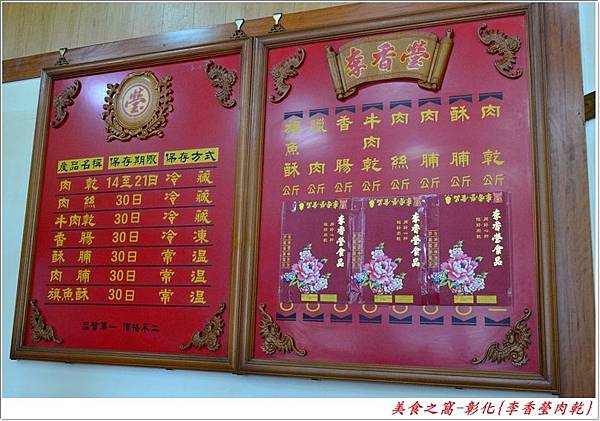 瑩
產品名稱 保存期限 保存方式
肉乾 14至21日 冷藏
肉絲 30日 冷藏
牛肉乾 30日 冷藏
香腸 30日 冷凍
酥脯 30日 常溫
肉脯 30日 常溫
旗魚酥 30日 常溫
品質第一 價格不二
李香瑩
肉乾 公斤
酥脯 公斤
肉脯 公斤
肉絲 公斤
牛肉乾 公斤
香腸 公斤
臘肉 公斤
旗魚酥 公斤
李香瑩食品
李香瑩食品
李香瑩食品
美食之窩-彰化{李香瑩肉乾}